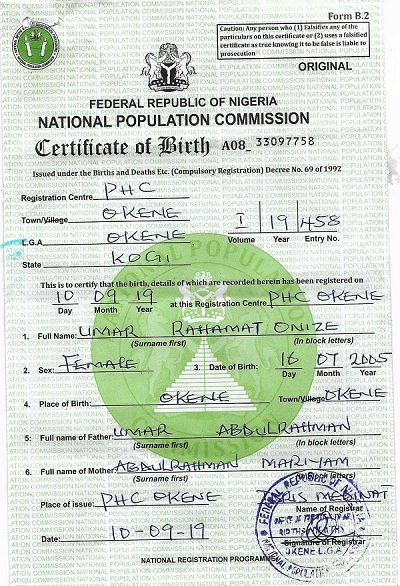 Form B.2
Caution: Any person who (1) Falsifies any of the
particulars on this certificate or (2) uses a falsified
certificate as true knowing it to be false is liable to
prosecution
ORIGINAL
FEDERAL REPUBLIC OF NIGERIA
NATIONAL POPULATION COMMISSION
Certificate of Birth A08_ 33097758
Issued under the Births and Deaths Etc. (Compulsory Registration) Decree No. 69 of 1992
Registration Centre PHC
Town/Village OKENE I 19 458
L.G.A OKENE Volume Year Entry No.
State KOGI
This is to certify that the birth, details of which are recorded herein has been registered on
10 09 19 at this Registration Centre PHC OKENE
Day Month Year
1. Full Name: UMAR RAHAMAT ONIZE
(Surname first) (In block letters)
2. Sex: FEMALE 3. Date of Birth: 16 07 2005
Day Month Year
4. Place of Birth: OKENE Town/Village OKENE
5. Full name of Father: UMAR ABDULRAHMAN
(Surname first) (In block letters)
6. Full name of Mother ABDULRAHMAN MARIYAM
(Surname first) (In block letters)
Place of issue: PHC OKENE IDRIS MEDINAT
Name of Registrar
Date: 10-09-19
Signature of Registrar
OKENE L.G.A
NATIONAL REGISTRATION PROGRAMME